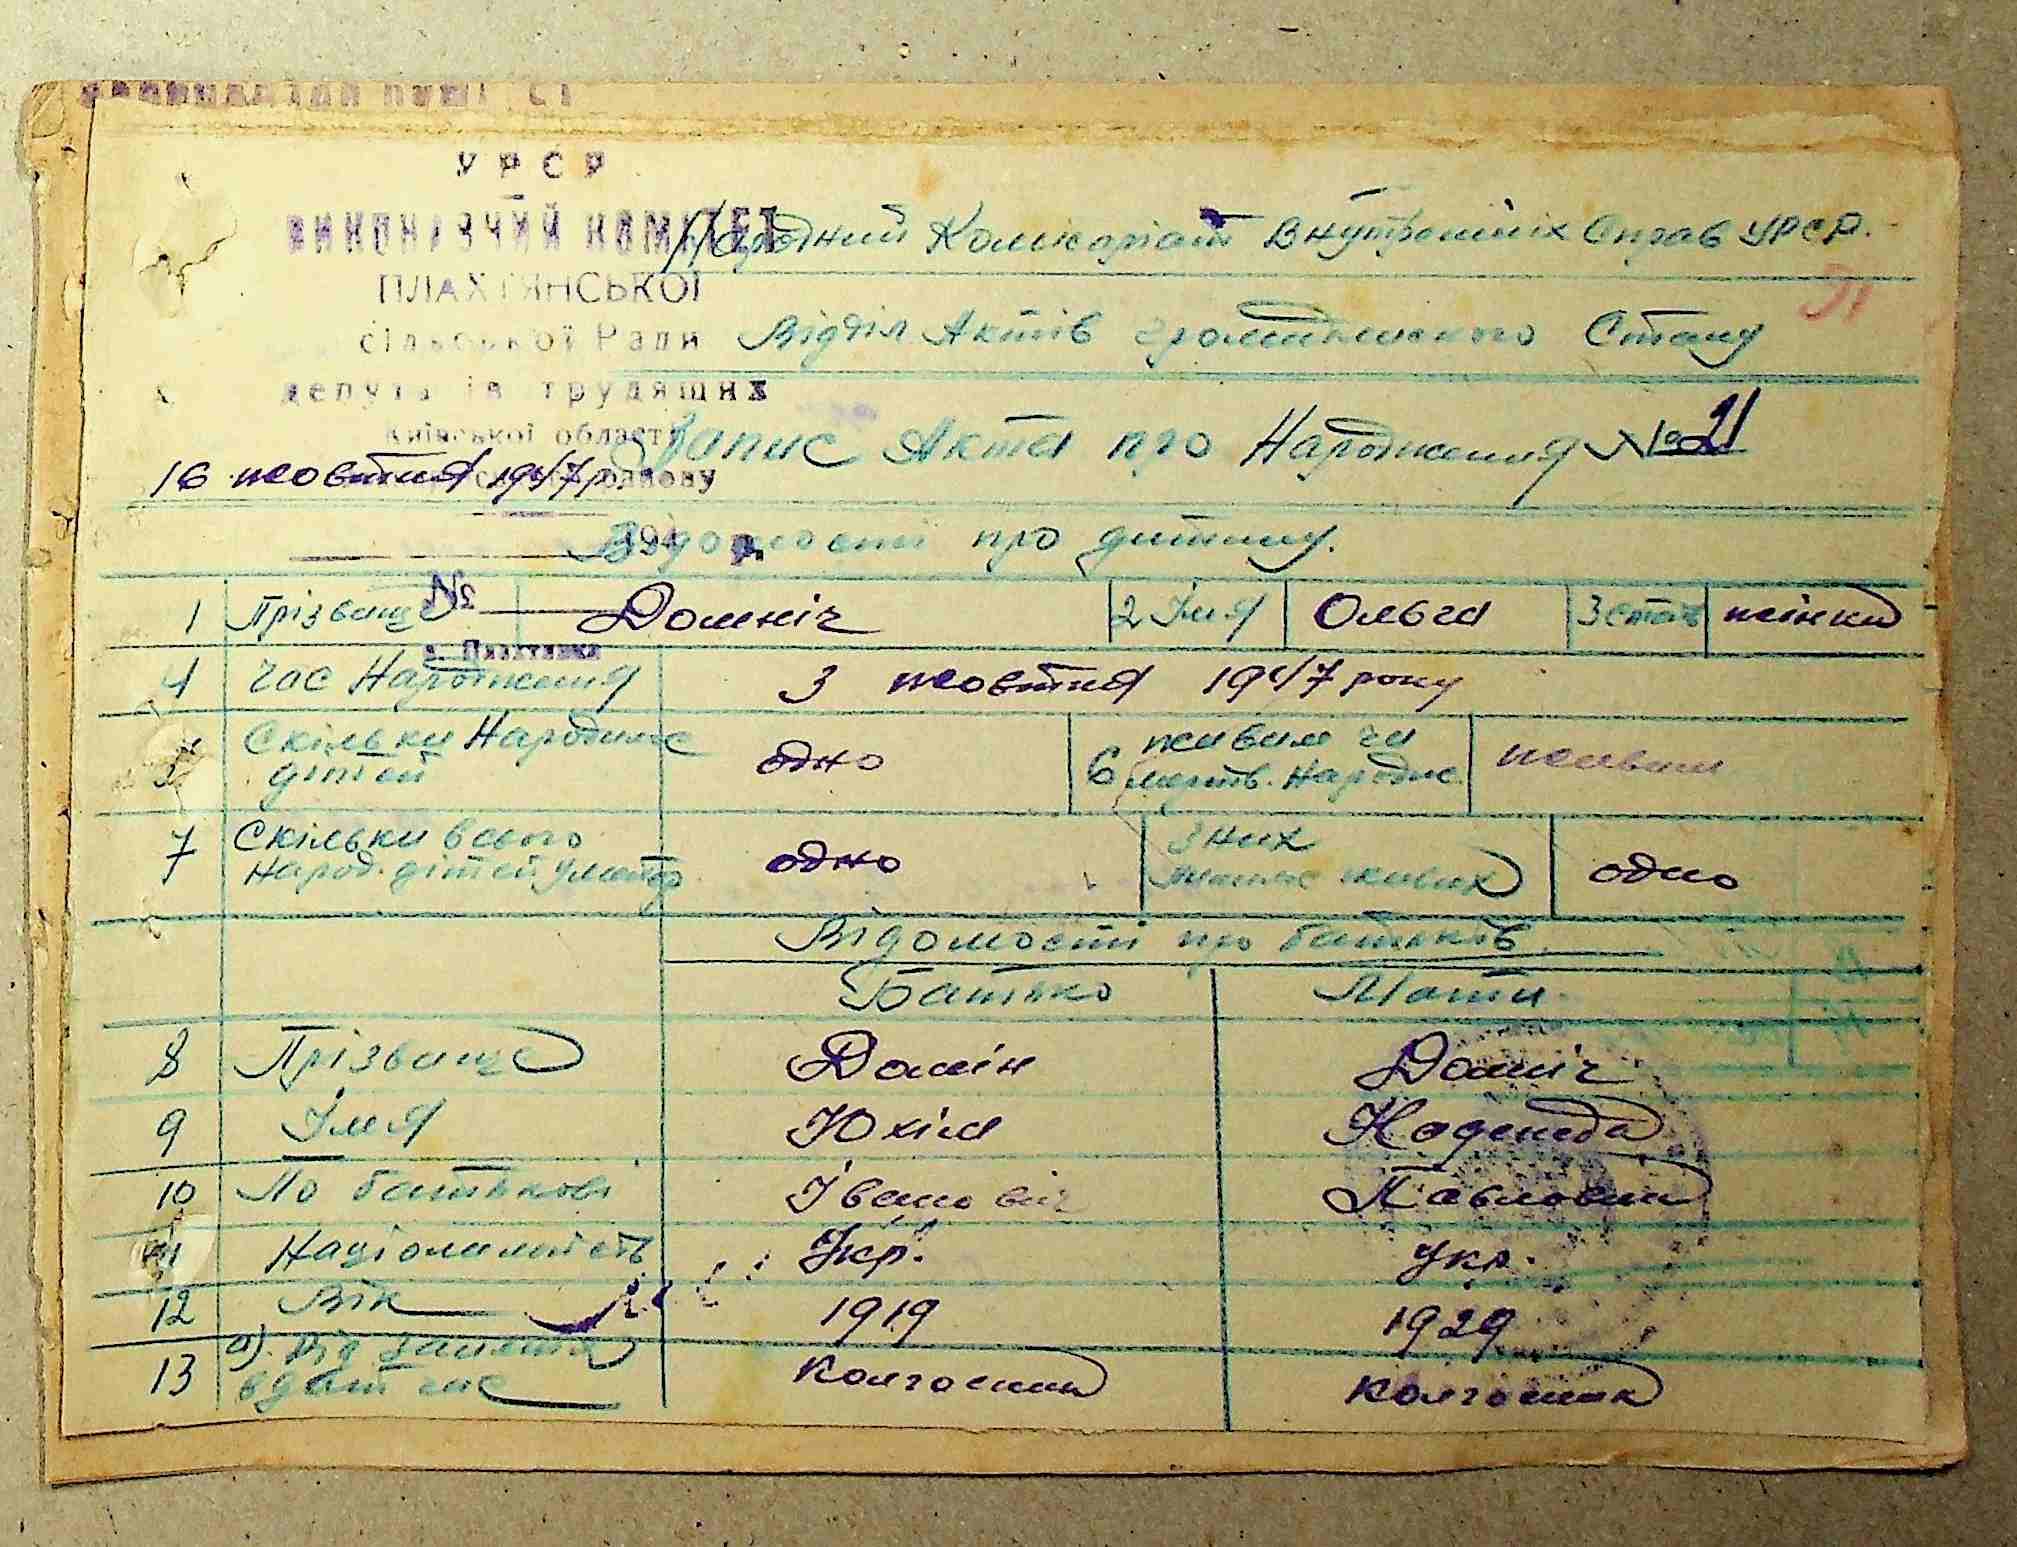 УРСР
ВИКОНАВЧИЙ КОМІТЕТ
ПЛАХТЯНСЬКОЇ
сільської Ради
депутатів трудящих
Київської області
194 р.
№
с. Плахтянка
Народний Комісаріат Внутрошніх Справ УРСР.
Відділ Актів громадянского Стану
Запис Акта про Народження №21
16 жовтня 1947 р
Відомості про дитину.
1 Прізвище Домніч 2 Імя Ольга 3 стать жінки
4 Час Народження 3 жовтня 1947 року
5 Скільки Народилос дітей одно 6 живим чи мертв. Народис. живим
7 Скільки всього Народ. дітей у матер одно З них живих одно
Відомості про батьків
Батько Мати
8 Прізвище Домін Домніч
9 Імя Юхим Надежда
10 По батькові Іванович Павловна
11 Національність Укр. Укр.
12 Вік 1919 1929
13 а). Рід Заняття в дат час колгоспник колгоспник